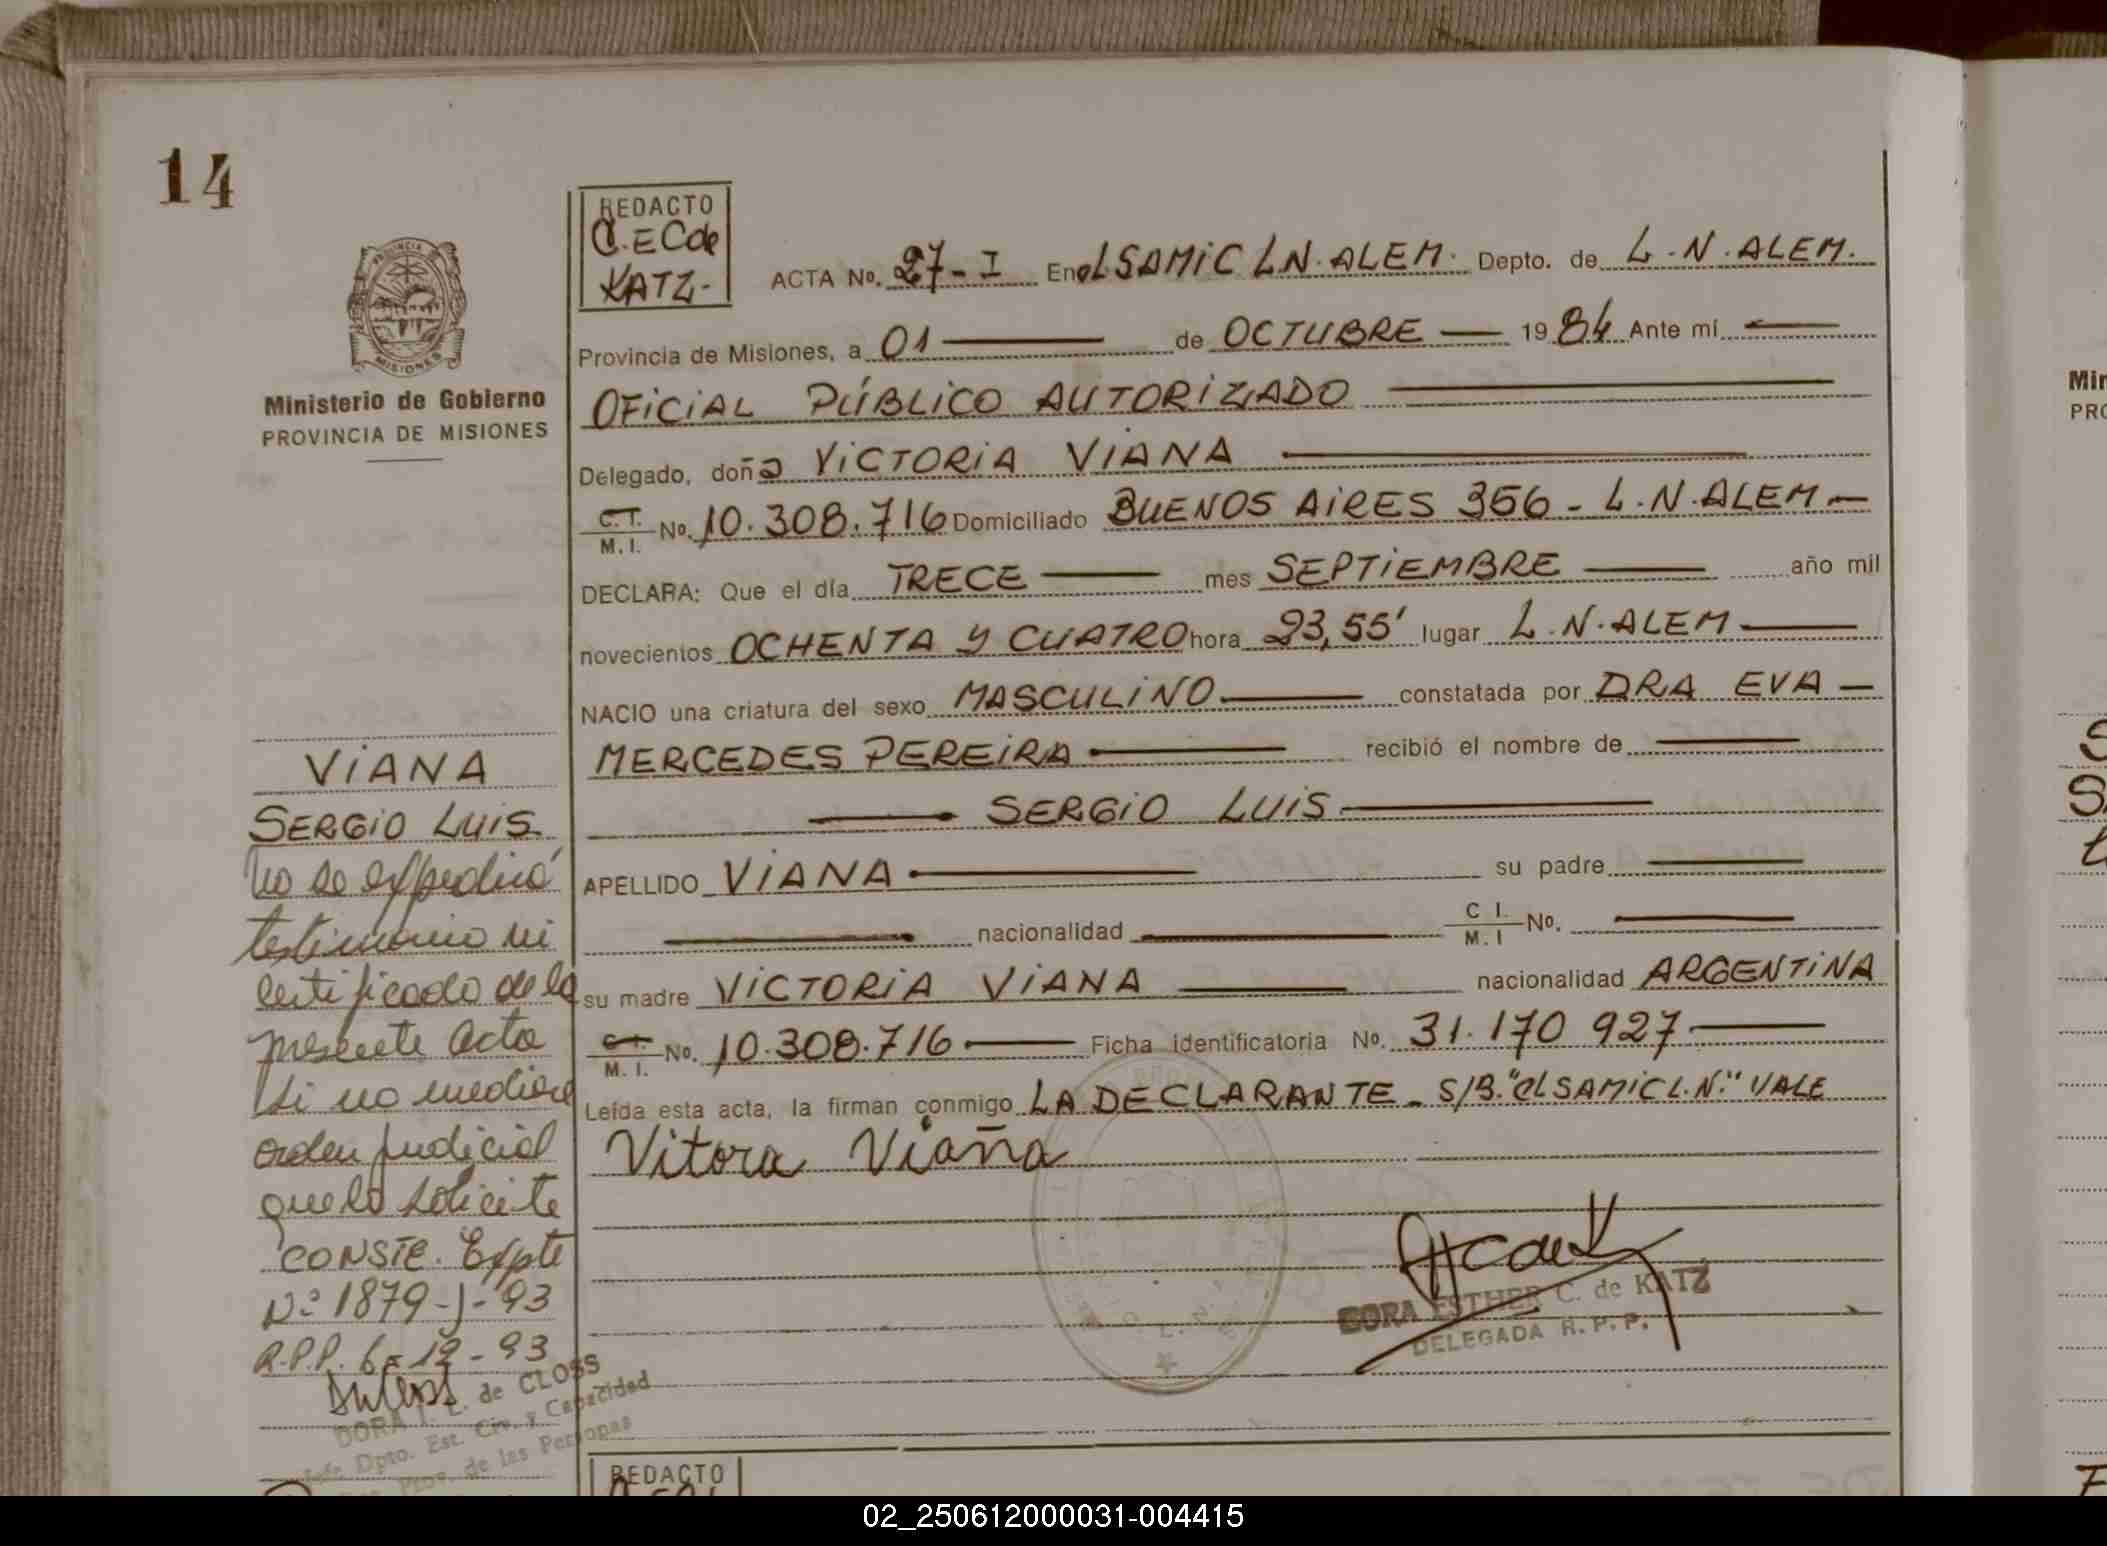 14
REDACTO
D.EC de
KATZ-
PROVINCIA DE
MISIONES
Ministerio de Gobierno
PROVINCIA DE MISIONES
ACTA No. 27-I En el SAMIC L.N. ALEM. Depto. de L.N. ALEM.
Provincia de Misiones, a 01 de OCTUBRE 19 84 Ante mí
OFICIAL PÚBLICO AUTORIZADO
Delegado, doña VICTORIA VIANA
C.I. M.I. No. 10.308.716 Domiciliado BUENOS AIRES 356 - L.N. ALEM -
DECLARA: Que el día TRECE mes SEPTIEMBRE año mil
novecientos OCHENTA Y CUATRO hora 23,55' lugar L.N. ALEM
NACIO una criatura del sexo MASCULINO constatada por DRA EVA
MERCEDES PEREIRA recibió el nombre de
SERGIO LUIS
APELLIDO VIANA su padre
nacionalidad C I. M. I No.
su madre VICTORIA VIANA nacionalidad ARGENTINA
C.I. M. I. No. 10.308.716 Ficha identificatoria No. 31.170 927
Leída esta acta, la firman conmigo LA DECLARANTE - S/B. "el SAMIC L.N." VALE
Vitora Viaña
DORA ESTHER C. de KATZ
DELEGADA R. P. P.
VIANA
SERGIO LUIS
No se expedirá
testimonio ni
certificado de la
presente acta
si no mediare
orden judicial
que lo solicite
CONSTE. Expte
Nº 1879-J-93
R.P.P. 6-12-93
DORA I. L. de CLOSS
Jefe Dpto. Est. Civ. y Capacidad
Prov. de las Personas
REDACTO
Min
PRO
02_250612000031-004415